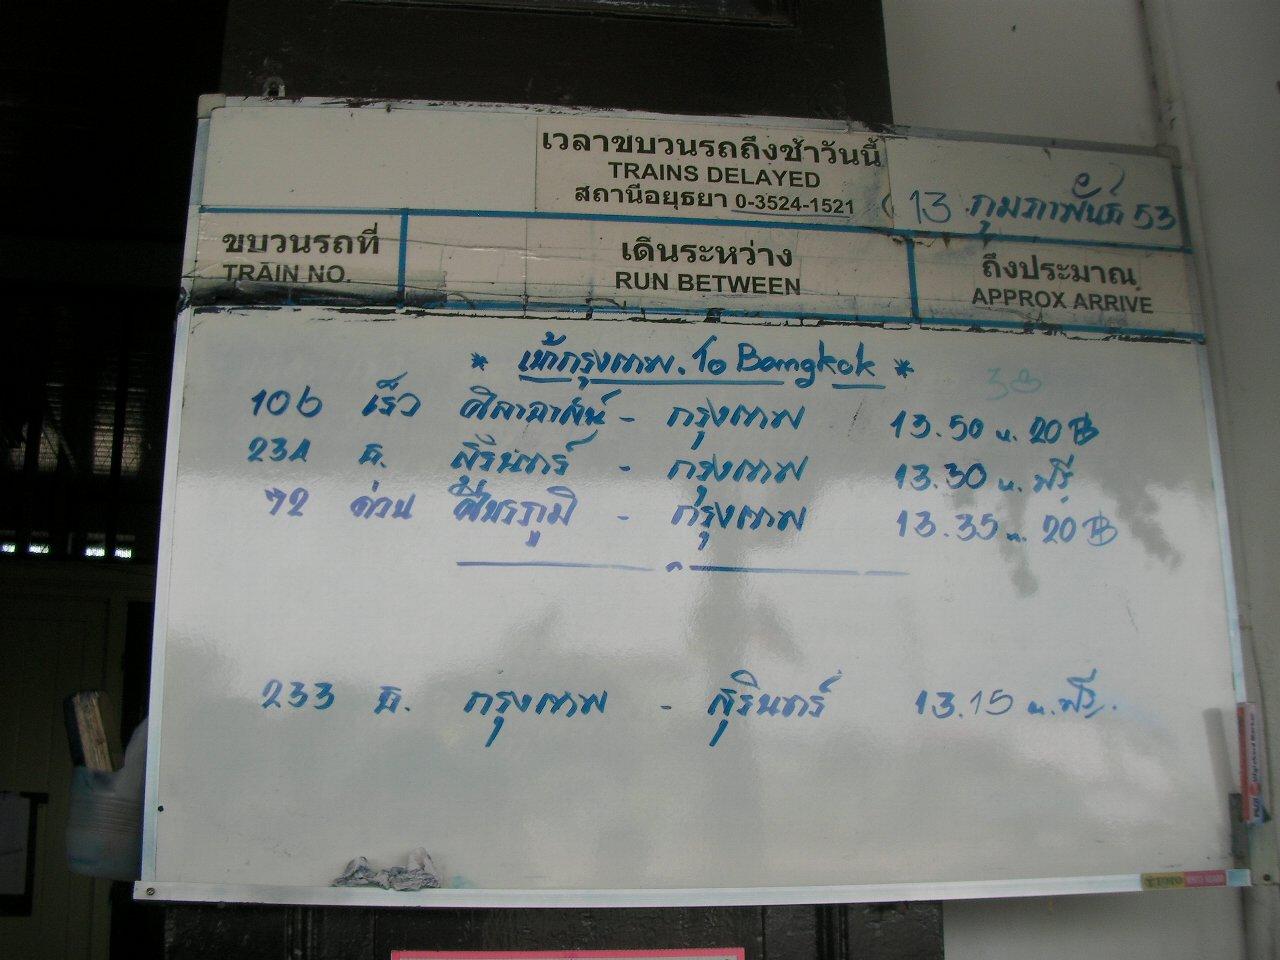 เวลาขบวนรถถึงช้าวันนี้
TRAINS DELAYED
สถานีอยุธยา 0-3524-1521
13 กุมภาพันธ์ 53
ขบวนรถที่ เดินระหว่าง ถึงประมาณ
TRAIN NO. RUN BETWEEN APPROX ARRIVE
* เข้ากรุงเทพ. To Bangkok *
106 เร็ว ศิลาอาสน์ - กรุงเทพ 13.50 น. 20 ฿
234 ธ. สุรินทร์ - กรุงเทพ 13.30 น. ฟรี
72 ด่วน ศีขรภูมิ - กรุงเทพ 13.35 น. 20 ฿
233 ธ. กรุงเทพ - สุรินทร์ 13.15 น. ฟรี.